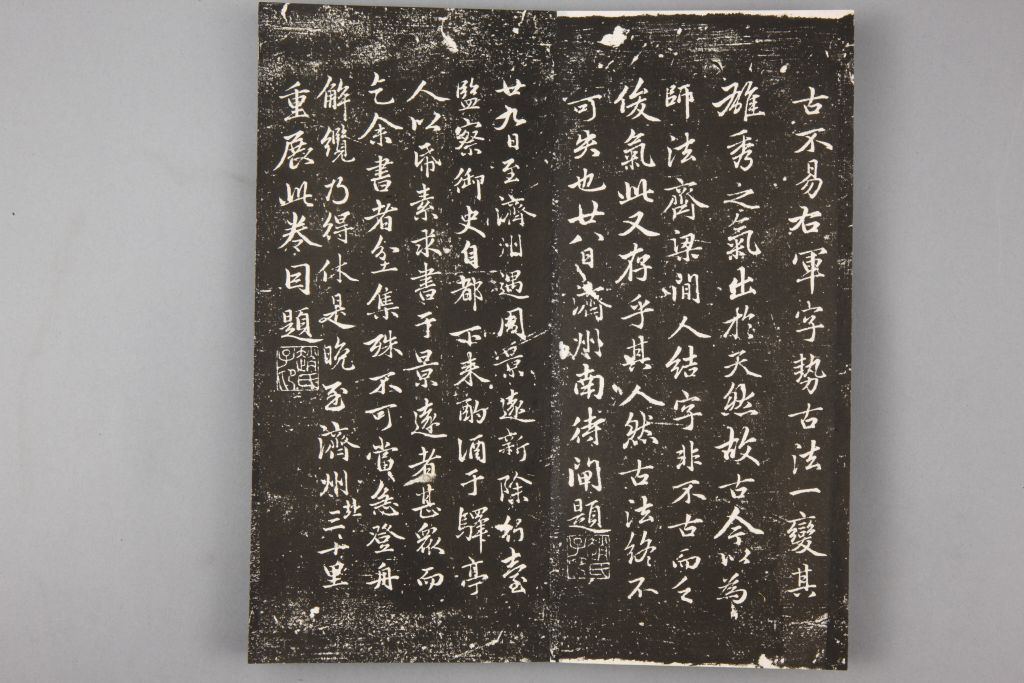 古不易右軍字勢古法一變其
雄秀之氣出於天然故古今以為
師法齊梁間人結字非不古而乏
俊氣此又存乎其人然古法終不
可失也廿八日濟州南待閘題
趙氏子昂
廿九日至濟州遇周景遠新除行臺
監察御史自都下来酌酒于驛亭
人以帋素求書于景遠者甚衆而
乞余書者坌集殊不可當急登舟
解纜乃得休是晚至濟州北三十里
重展此卷因題
趙氏子昂